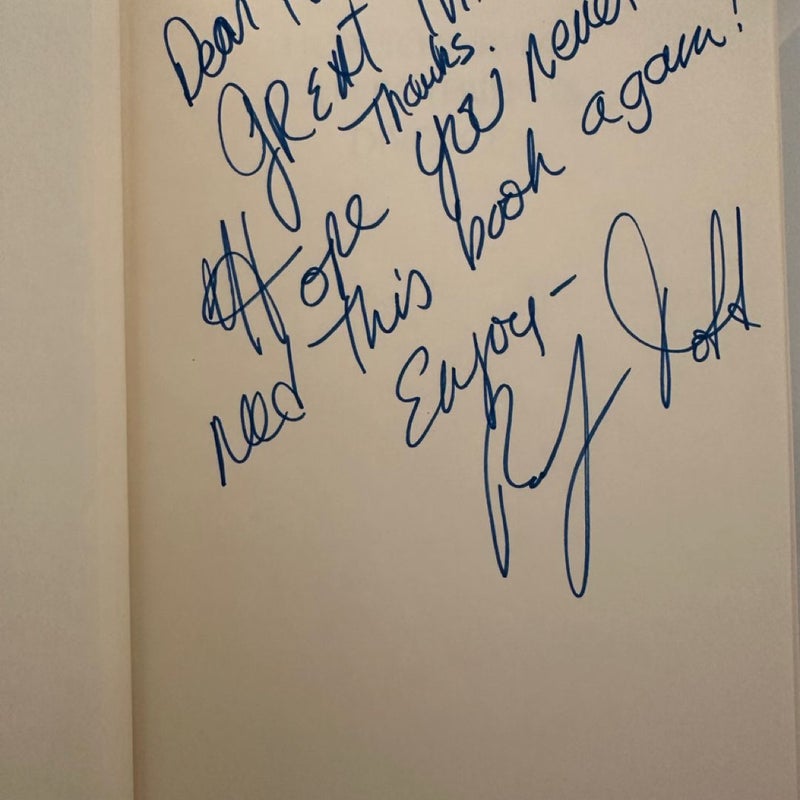 Dear
GREAT
Thanks.
Hope you never
need this book again!
Enjoy-